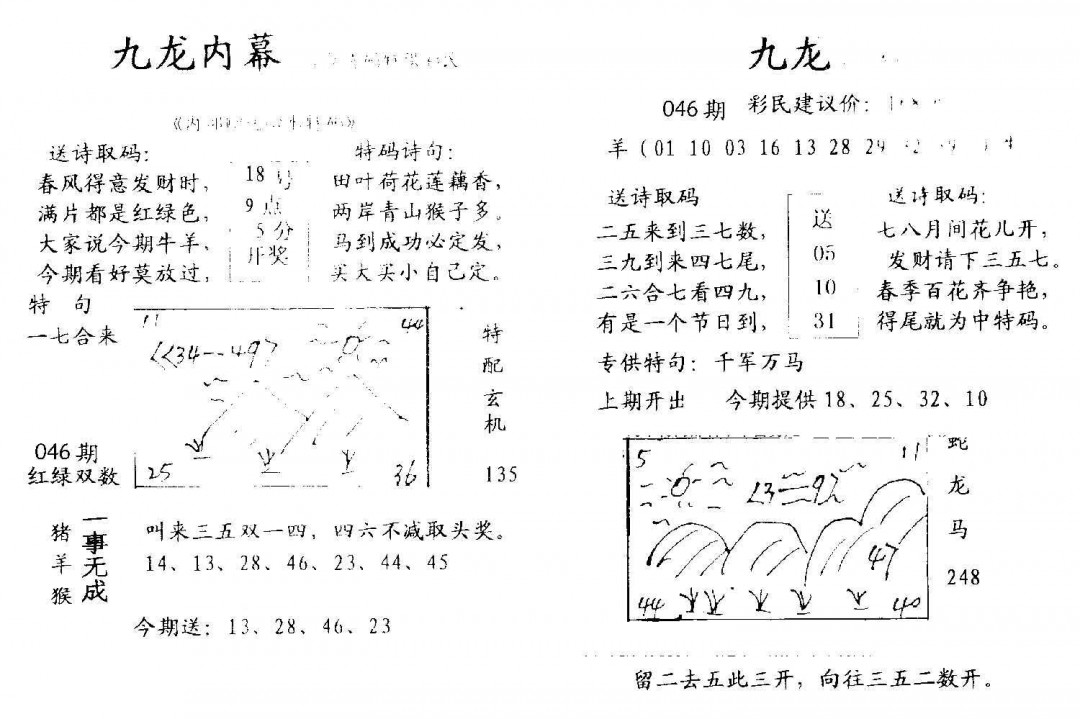 九龙内幕
送诗取码：
春风得意发财时，
满片都是红绿色，
大家说今期牛羊，
今期看好莫放过，
18号
9点
5分
开奖
特码诗句：
田叶荷花莲藕香，
两岸青山猴子多。
马到成功必定发，
买大买小自己定。
特 句
一七合来
046期
红绿双数
11
44
25
36
特配玄机
135
猪羊猴
一事无成
叫来三五双一四，四六不减取头奖。
14、13、28、46、23、44、45
今期送：13、28、46、23
九龙
046期 彩民建议价：
羊（01 10 03 16 13 28
送诗取码
二五来到三七数，
三九到来四七尾，
二六合七看四九，
有是一个节日到，
送
05
10
31
送诗取码：
七八月间花儿开，
发财请下三五七。
春季百花齐争艳，
得尾就为中特码。
专供特句：千军万马
上期开出 今期提供18、25、32、10
5
11
47
44
40
蛇
龙
马
248
留二去五此三开，向往三五二数开。